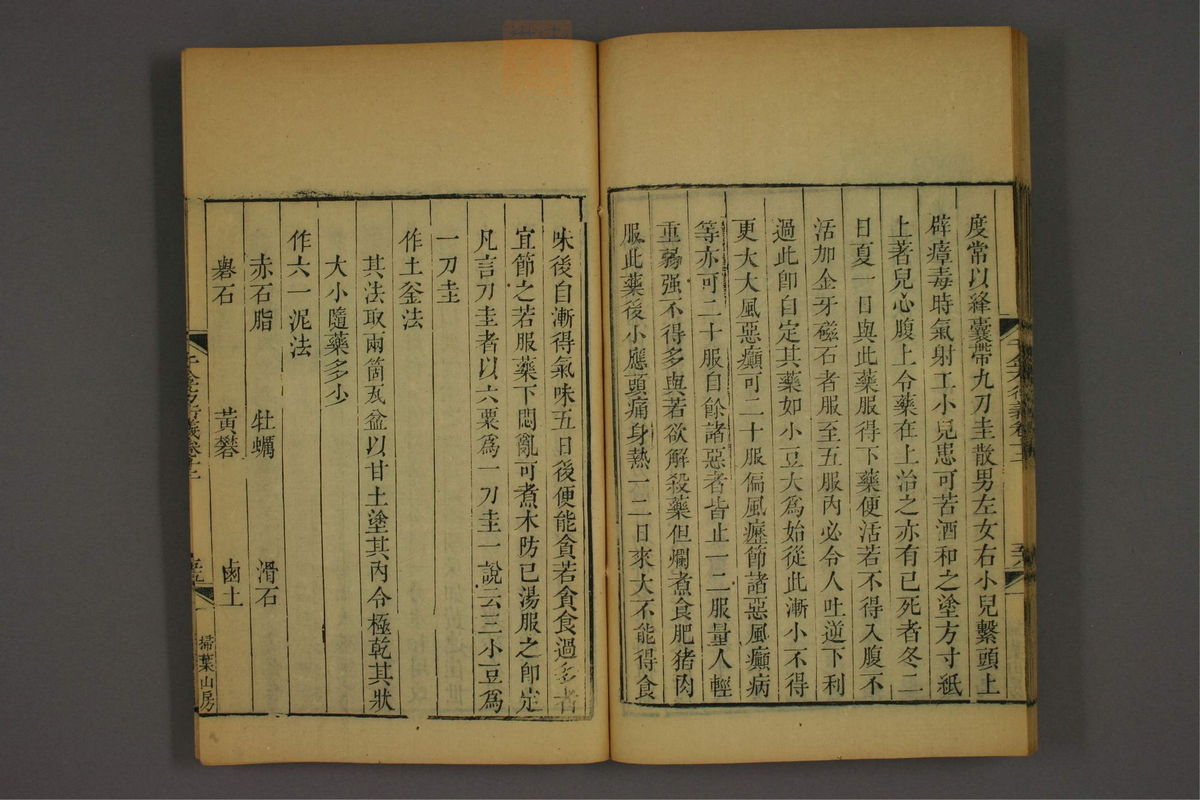 度常以絳囊帶九刀圭散男左女右小兒繫頭上
辟瘴毒時氣射工小兒患可苦酒和之塗方寸紙
上著兒心腹上令藥在上治之亦有已死者冬二
日夏一日與此藥服得下藥便活若不得入腹不
活加金牙磁石者服至五服內必令人吐逆下利
過此卽自定其藥如小豆大爲始從此漸小不得
更大大風惡癲可二十服偏風歷節諸惡風癲病
等亦可二十服自餘諸惡者皆止一二服量人輕
重弱强不得多與若欲解殺藥但爛煮食肥猪肉
服此藥後小應頭痛身熱一二日來大不能得食
味後自漸得氣味五日後便能貪若貪食過多者
宜節之若服藥下悶亂可煮木防已湯服之卽定
凡言刀圭者以六粟爲一刀圭一說云三小豆爲
一刀圭
作土釜法
其法取兩箇瓦盆以甘土塗其內令極乾其狀
大小隨藥多少
作六一泥法
赤石脂 牡蠣 滑石
礜石 黃礬 鹵土
千金方衍義卷十二
掃葉山房